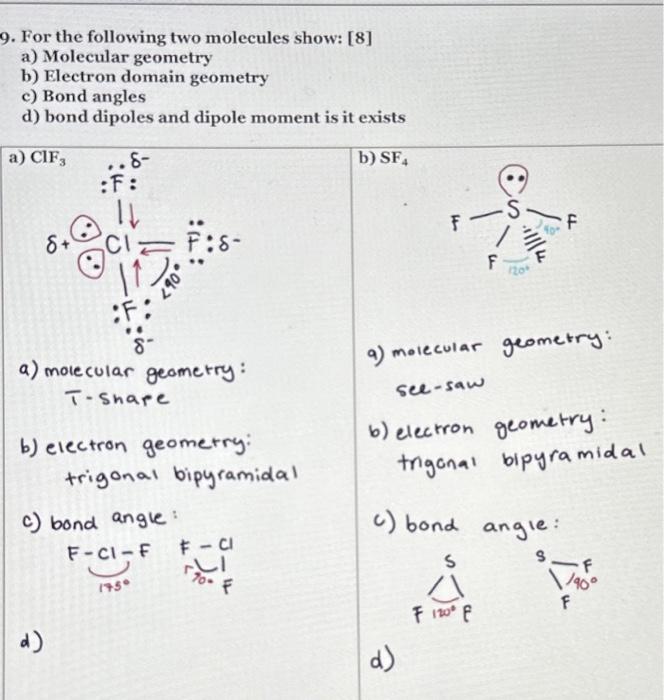 9. For the following two molecules show: [8]
a) Molecular geometry
b) Electron domain geometry
c) Bond angles
d) bond dipoles and dipole moment is it exists
a) ClF₃
δ-
:F:
δ+ Cl F:δ-
<90°
:F:
δ-
a) molecular geometry:
T-shape
b) electron geometry:
trigonal bipyramidal
c) bond angle:
F-Cl-F F-Cl
175° 90° F
d)
b) SF₄
S
F F
90°
F F
120°
a) molecular geometry:
see-saw
b) electron geometry:
trigonal bipyramidal
c) bond angle:
S S F
90°
F 120° F F
d)